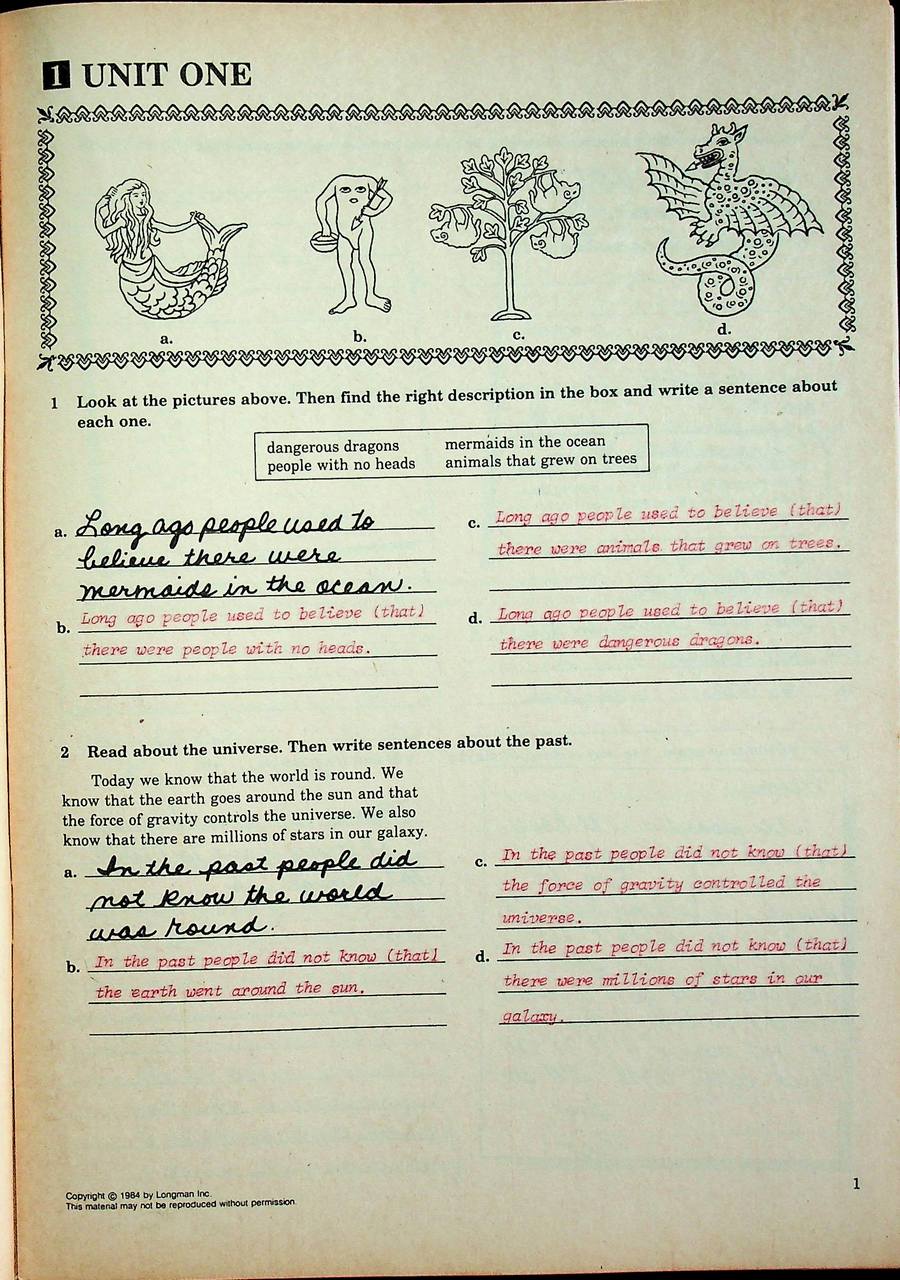 1 UNIT ONE
a. b. c. d.
1 Look at the pictures above. Then find the right description in the box and write a sentence about
each one.
dangerous dragons mermaids in the ocean
people with no heads animals that grew on trees
a. Long ago people used to
believe there were
mermaids in the ocean.
b. Long ago people used to believe (that)
there were people with no heads.
c. Long ago people used to believe (that)
there were animals that grew on trees.
d. Long ago people used to believe (that)
there were dangerous dragons.
2 Read about the universe. Then write sentences about the past.
Today we know that the world is round. We
know that the earth goes around the sun and that
the force of gravity controls the universe. We also
know that there are millions of stars in our galaxy.
a. In the past people did
not know the world
was round.
b. In the past people did not know (that)
the earth went around the sun.
c. In the past people did not know (that)
the force of gravity controlled the
universe.
d. In the past people did not know (that)
there were millions of stars in our
galaxy.
Copyright © 1984 by Longman Inc.
This material may not be reproduced without permission.
1